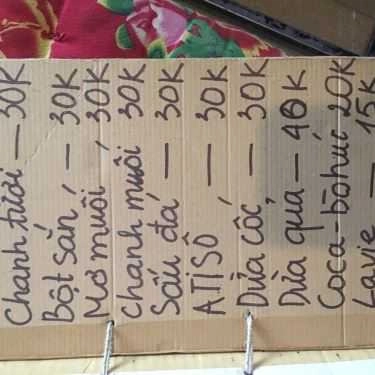 Chanh tươi — 30K
Bột sắn, — 30K
Mơ muối, 30K
chanh muối 30K
Sấu đá — 30K
ATISÔ — 30K
Dừa cốc, — 30K
Dừa quả — 40K
Coca-bòhúc 20K
Lavie — 15K